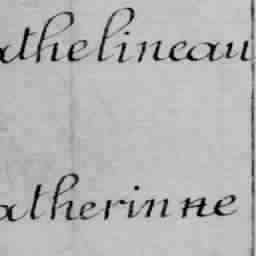 athelineau
atherinne